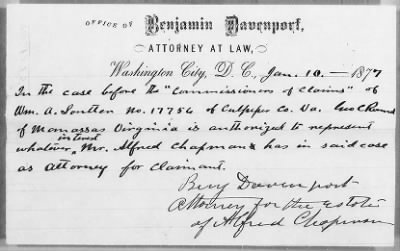 OFFICE OF Benjamin Davenport,
ATTORNEY AT LAW,
Washington City, D. C., Jan. 10. — 1877
In the case before the "Commissioners of Claims" of
Wm. A. No. 17756 of Culpeper Co. Va. Geo C Round
of Manassas Virginia is authorized to represent
interest
whatever Mr. Alfred Chapman has in said case
as attorney for claimant.
Benj Davenport
Attorney for the Estate
of Alfred Chapman